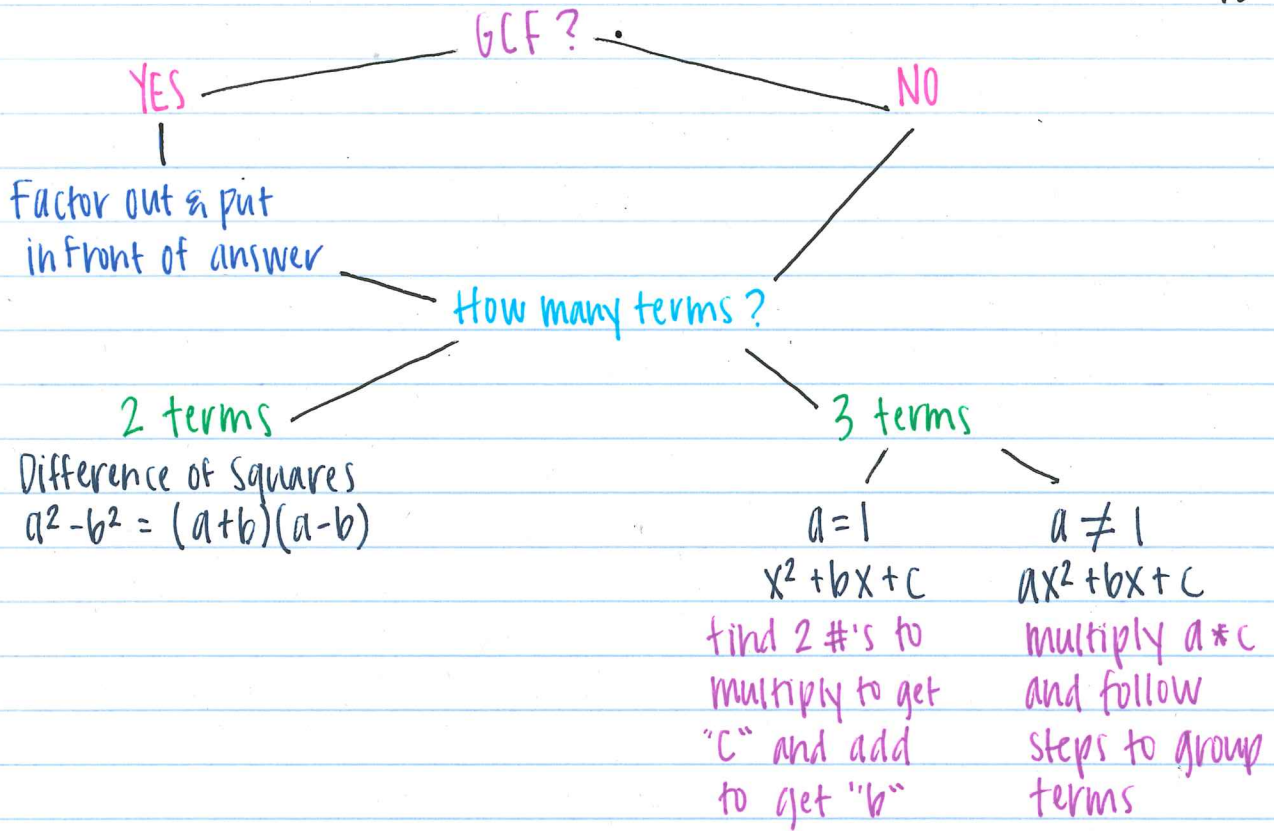 GCF?
YES
NO
Factor out & put
in front of answer
How many terms?
2 terms
Difference of Squares
a² - b² = (a+b)(a-b)
3 terms
a = 1
x² + bx + c
find 2 #'s to
multiply to get
"C" and add
to get "b"
a ≠ 1
ax² + bx + c
multiply a * c
and follow
steps to group
terms